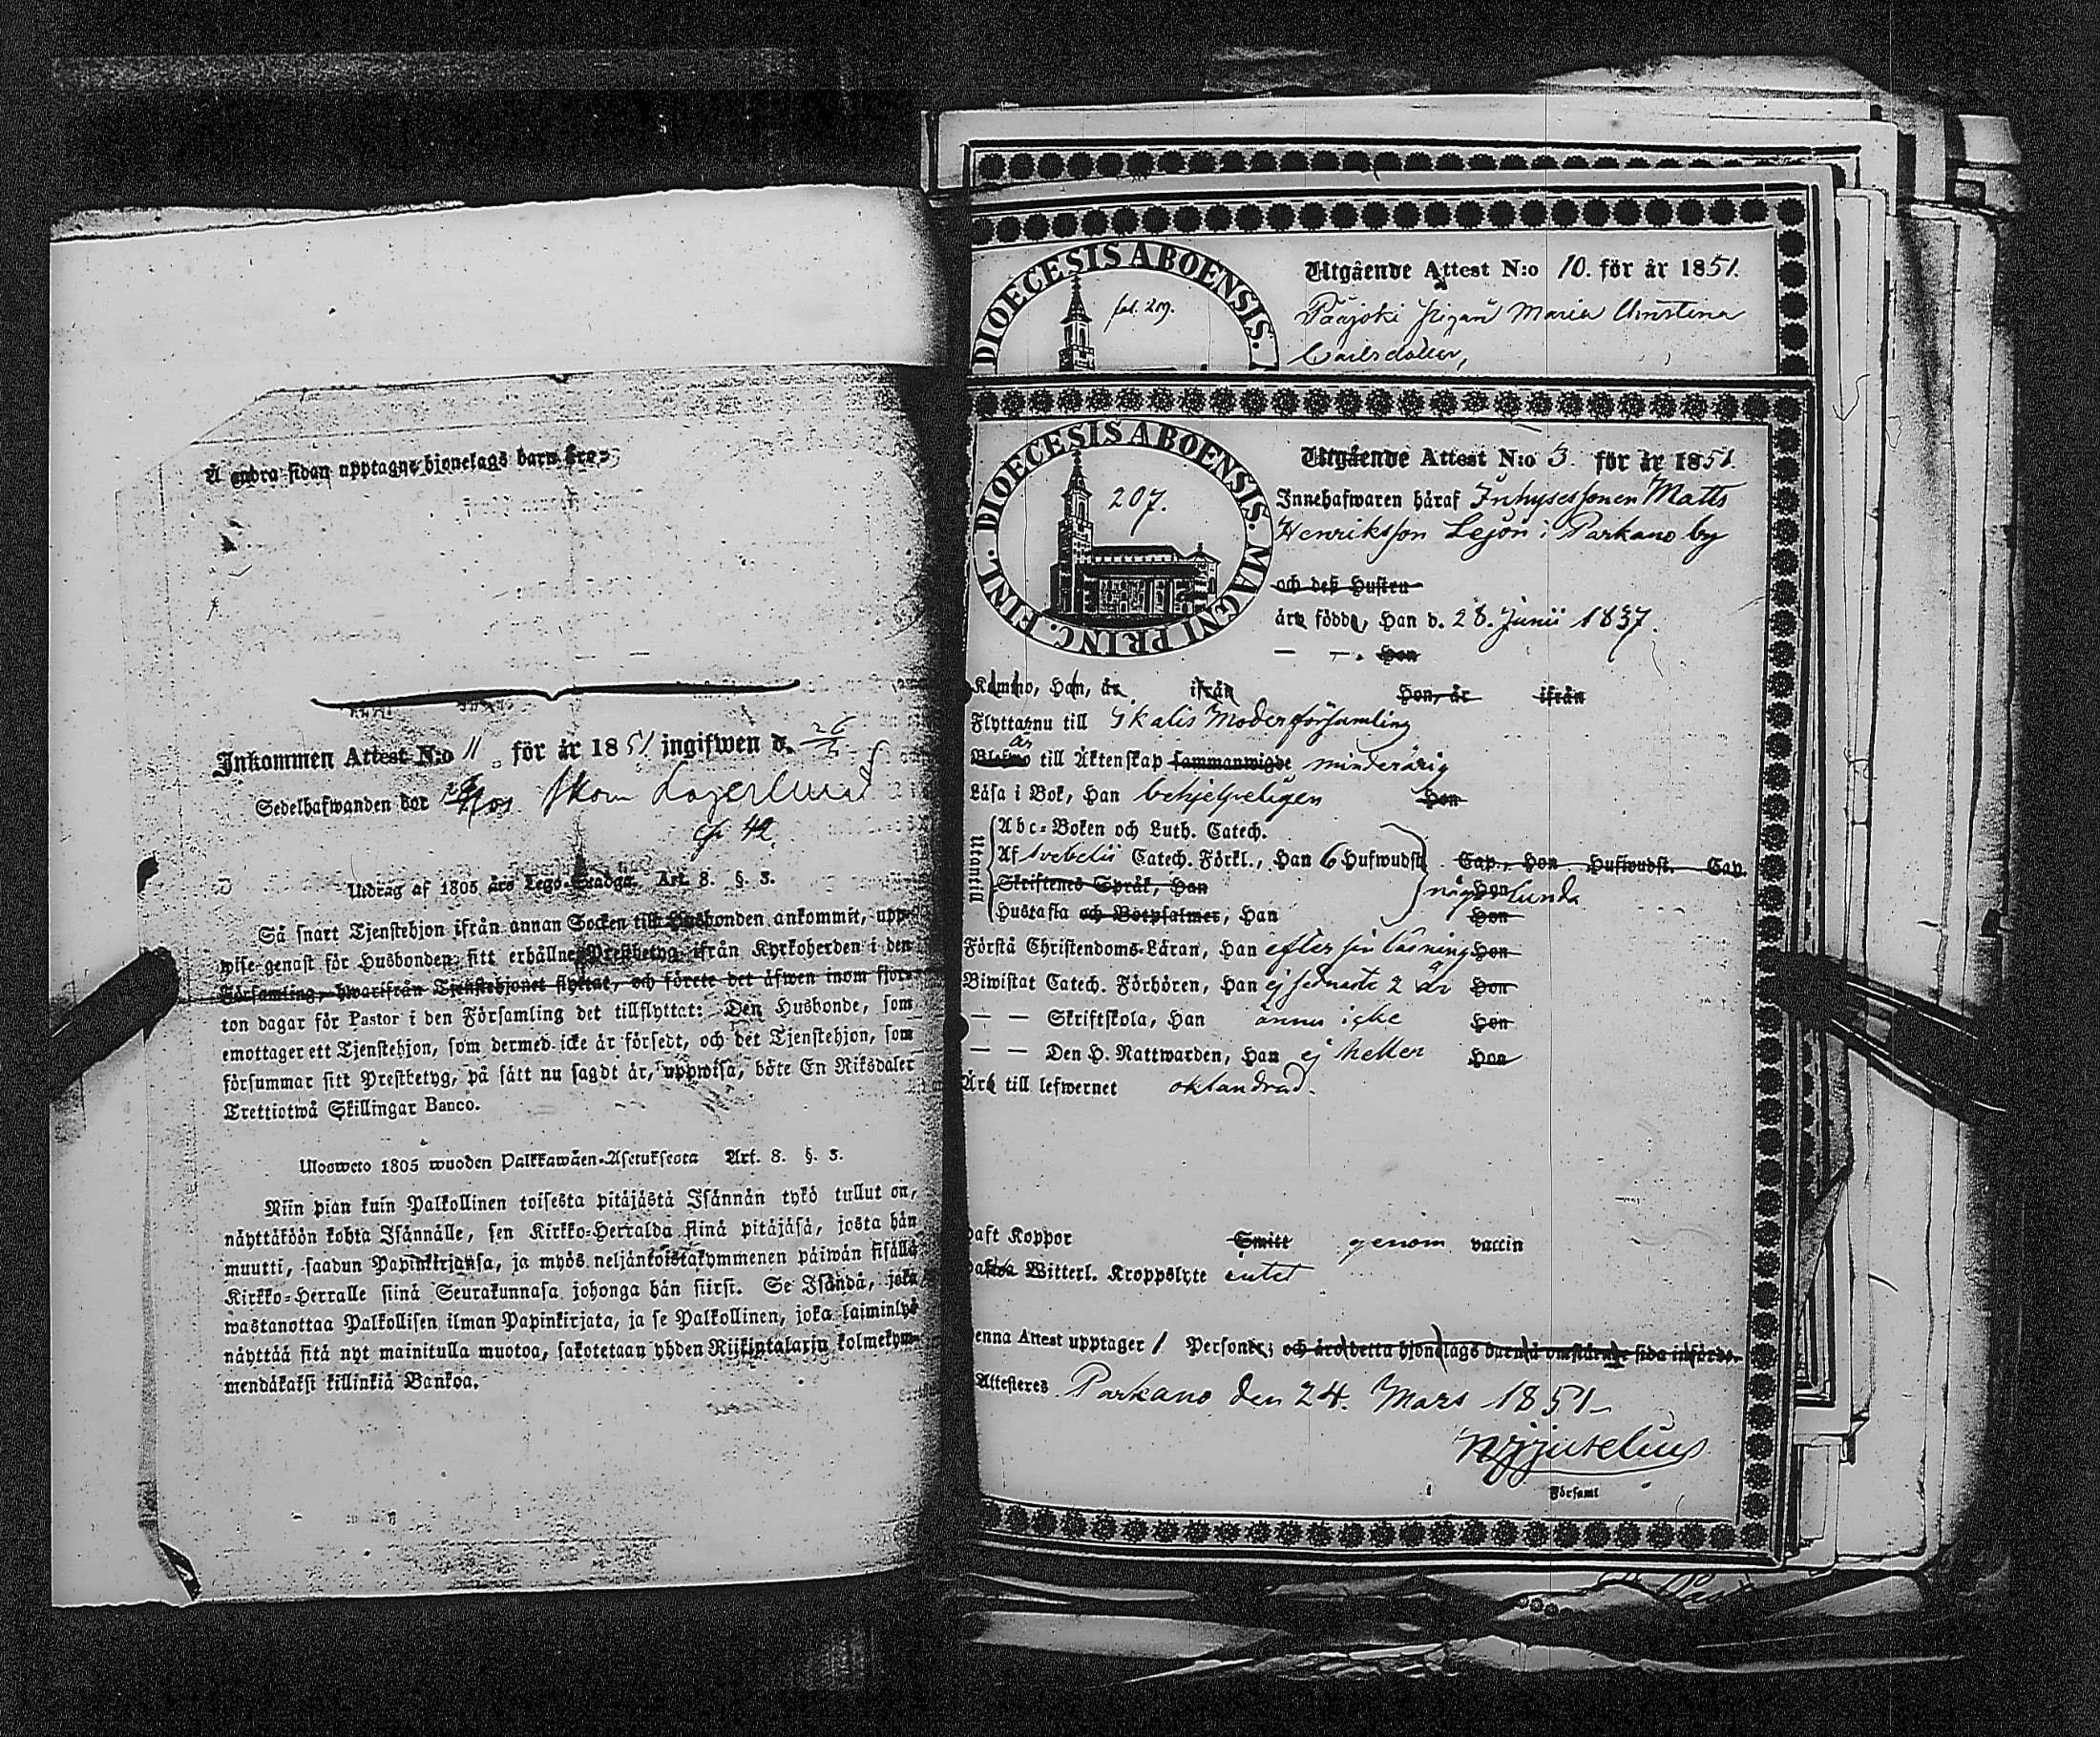 Å andra sidan upptagne hjonelags barn äro:
Inkommen Attest N:o 11. för år 1851 ingifwen d. 26/3
Sedelhafwanden bor hos Skom Lagerlund
42.
Utdrag af 1805 års Lego-Stadga. Art. 8. §. 3.
Så snart Tjenstehjon ifrån annan Socken till Husbonden ankommit, upp-
wise genast för Husbonden sitt erhållne Prestbetyg ifrån Kyrkoherden i den
Församling, hwarifrån Tjenstehjonet flyttat, och förete det äfwen inom fjor-
ton dagar för Pastor i den Församling det tillflyttat: Den Husbonde, som
emottager ett Tjenstehjon, som dermed icke är försedt, och det Tjenstehjon, som
försummar sitt Prestbetyg, på sätt nu sagdt är, uppwisa, böte En Riksdaler
Trettiotwå Skillingar Banco.
Ulosweto 1805 wuoden Palkkawäen-Asetuksesta Art. 8. §. 3.
Niin pian kuin Palkollinen toisesta pitäjästä Isännän tykö tullut on,
näyttäköön kohta Isännälle, sen Kirkko-Herralda siinä pitäjäsä, josta hän
muutti, saadun Papinkirjansa, ja myös neljäntoistakymmenen päiwän sisällä
Kirkko-Herralle siinä Seurakunnasa johonga hän siirst. Se Isändä, joka
wastanottaa Palkollisen ilman Papinkirjata, ja se Palkollinen, joka laiminlyö
näyttää sitä nyt mainitulla muotoa, sakotetaan yhden Riikintalarin kolmekym-
mendäkaksi killinkiä Bankoa.
DIOECESIS ABOENSIS.
fol. 219.
Utgående Attest N:o 10. för år 1851.
Pääjoki Pigan Maria Christina
Carlsdotter,
DIOECESIS ABOENSIS. MAGNI PRINC. FINL.
207.
Utgående Attest N:o 3. för år 1851
Innehafwaren häraf Inhysessonen Matts
Henriksson Lejon i Parkano by
och deß Hustru
äro födde, Han d. 28. Junii 1837.
— —. Hon
Komno, Han, år ifrån Hon, år ifrån
Flytta nu till Ikalis Moderförsamling
är
till Äktenskap sammanwigde minderårig
Läsa i Bok, Han behjelpeligen Hon
Utantill
Abc-Boken och Luth. Catech.
Af Svebelii Catech. Förkl., Han 6 Hufwudst. Cap., Hon Hufwudst. Cap.
Skriftenes Språk, Han någorlunda Hon
Hustafla och Botpsalmer, Han Hon
Förstå Christendoms-Läran, Han efter sin läsning Hon
Biwistat Catech. Förhören, Han ej sednaste 2 år Hon
— — Skriftskola, Han ännu icke Hon
— — Den H. Nattwarden, Han ej heller Hon
Äro till lefwernet oklandrad.
haft Koppor Smitt genom vaccin
Witterl. Kroppslyte intet
enna Attest upptager 1 Personer; och äro detta hjonelags barn å omstående sida införde.
Attesteres Parkano den 24. Mars 1851
Församl